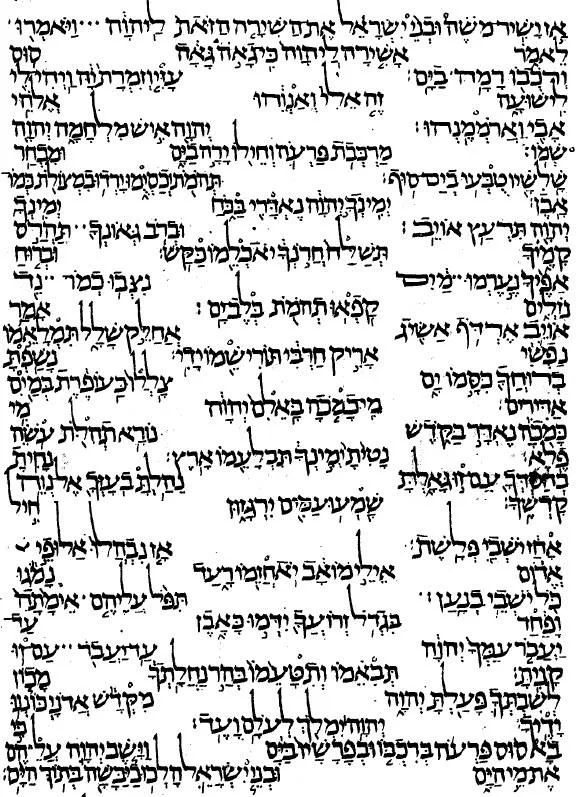 אז ישיר משה ובני ישראל את השירה הזאת ליהוה ויאמרו
לאמר אשירה ליהוה כי גאה גאה סוס
ורכבו רמה בים: עזי וזמרת יה ויהי לי
לישועה זה אלי ואנוהו אלהי
אבי וארממנהו: יהוה איש מלחמה יהוה
שמו: מרכבת פרעה וחילו ירה בים ומבחר
שלשיו טבעו בים סוף: תהמת יכסימו ירדו במצולת כמו
אבן: ימינך יהוה נאדרי בכח ימינך
יהוה תרעץ אויב: וברב גאונך תהרס
קמיך תשלח חרנך יאכלמו כקש: וברוח
אפיך נערמו מים נצבו כמו נד
נזלים קפאו תהמת בלב ים: אמר
אויב ארדף אשיג אחלק שלל תמלאמו
נפשי אריק חרבי תורישמו ידי: נשפת
ברוחך כסמו ים צללו כעופרת במים
אדירים: מי כמכה באלם יהוה מי
כמכה נאדר בקדש נורא תהלת עשה
פלא: נטית ימינך תבלעמו ארץ: נחית
בחסדך עם זו גאלת נהלת בעזך אל נוה
קדשך: שמעו עמים ירגזון חיל
אחז ישבי פלשת: אז נבהלו אלופי
אדום אילי מואב יאחזמו רעד נמגו
כל ישבי כנען: תפל עליהם אימתה
ופחד בגדל זרועך ידמו כאבן עד
יעבר עמך יהוה עד יעבר עם זו
קנית: תבאמו ותטעמו בהר נחלתך מכון
לשבתך פעלת יהוה מקדש אדני כוננו
ידיך: יהוה ימלך לעלם ועד: כי
בא סוס פרעה ברכבו ובפרשיו בים וישב יהוה עליהם
את מי הים ובני ישראל הלכו ביבשה בתוך הים: